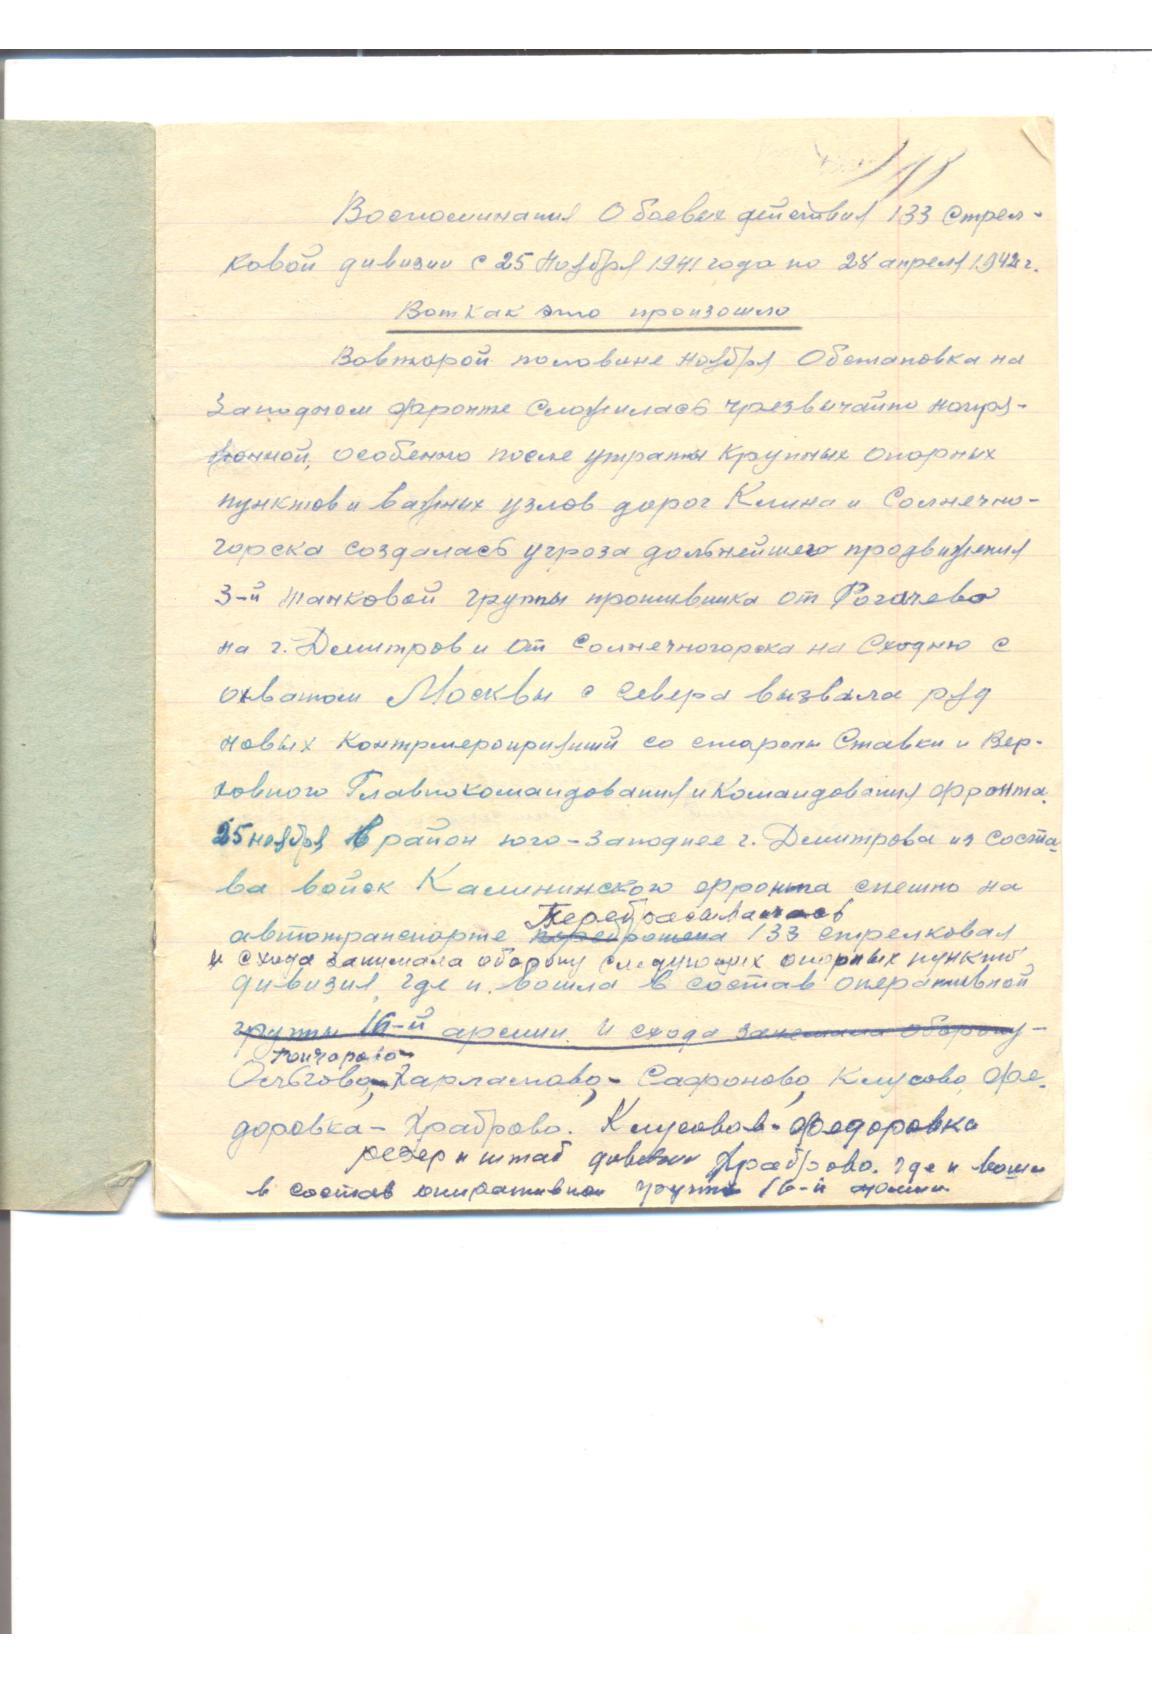 Воспоминания О боевых действия 133 Стрел-
ковой дивизии с 25 Ноября 1941 года по 28 апреля 1942 г.
Вот Как это произошло
Вовторой половине ноября Обстановка на
Западном фронте Сложилась чрезвичайно напря-
жонной, особенно после утраты Крупных опорных
пунктов и важных узлов дорог Клина и Солнечно-
горска создалась угроза дальнейшего продвижения
3-й танковой группы противника от Рогачево
на г. Дмитров и от Солнечногорска на Сходню с
охватом Москвы с севера вызвала ряд
новых контрмероприятий со стороны Ставки и Вер-
ховного Главнокомандования и Командования фронта.
25 ноября в район юго-западнее г. Дмитрова из соста-
ва войск Калининского фронта спешно на
Перебрасывалась
автотранспорте переброшена 133 стрелковая
и схода занимала оборону следующих опорных пунктов
дивизия, где и вошла в состав оперативной
группы 16-й армии. И схода занимала оборону-
Гончарово-
Ольгово,- Харламово,- Сафоново, Клусово, Фе-
доровка- Храброво. Клусово- Федоровка
резер и штаб дивизии Храброво. где и вошла
в состав оперативной группы 16-й армии.